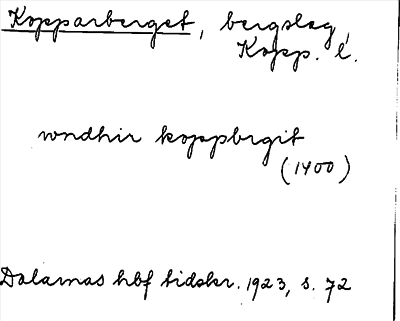 Kopparberget, bergslag,
Kopp. l.
wndhir koppbrgit
(1400)
Dalarnas hbf tidskr. 1923, s. 72